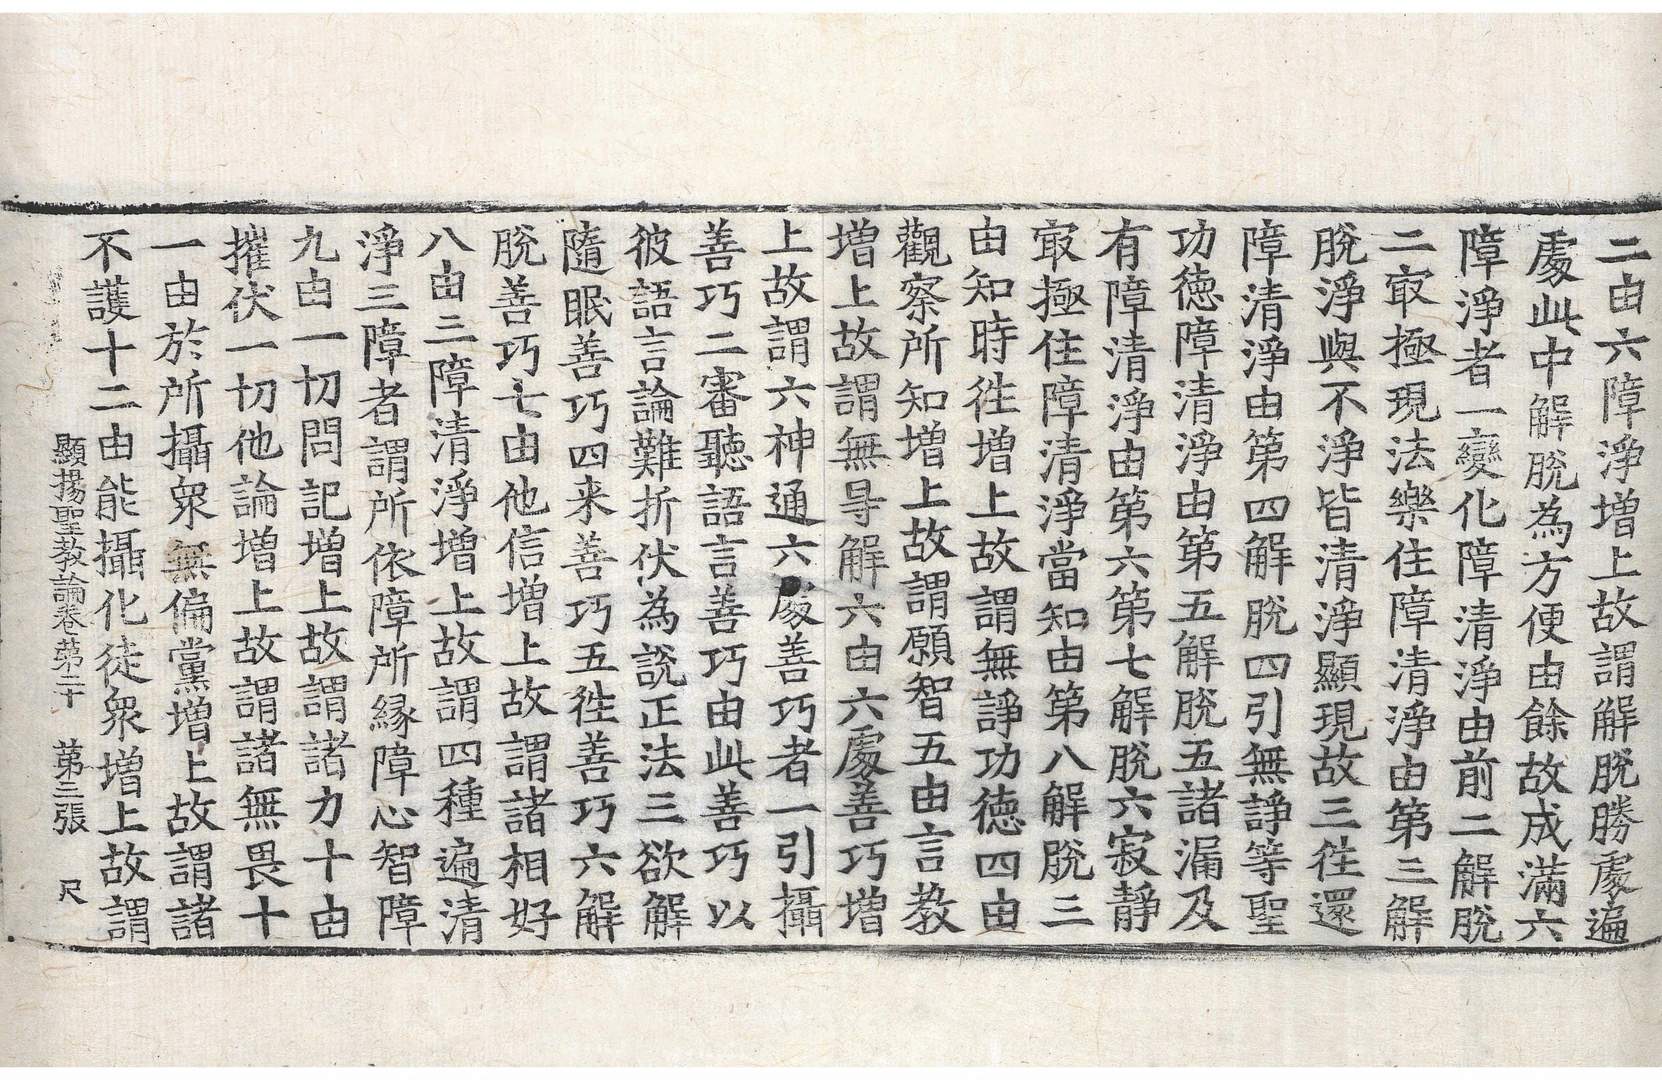 二由六障淨增上故謂解脫勝處遍
處此中解脫為方便由餘故成滿六
障淨者一變化障清淨由前二解脫
二㝡極現法樂住障清淨由第三解
脫淨與不淨皆清淨顯現故三徃還
障清淨由第四解脫四引無諍等聖
功德障清淨由第五解脫五諸漏及
有障清淨由第六第七解脫六寂靜
㝡極住障清淨當知由第八解脫三
由知時徃增上故謂無諍功德四由
觀察所知增上故謂願智五由言教
增上故謂無导解六由六處善巧增
上故謂六神通六處善巧者一引攝
善巧二審聽語言善巧由此善巧以
彼語言論難折伏為說正法三欲解
隨眠善巧四来善巧五徃善巧六解
脫善巧七由他信增上故謂諸相好
八由三障清淨增上故謂四種遍清
淨三障者謂所依障所緣障心智障
九由一切問記增上故謂諸力十由
摧伏一切他論增上故謂諸無畏十
一由於所攝衆無偏黨增上故謂諸
不護十二由能攝化徒衆增上故謂
顯揚聖教論卷第二十　第三張　尺